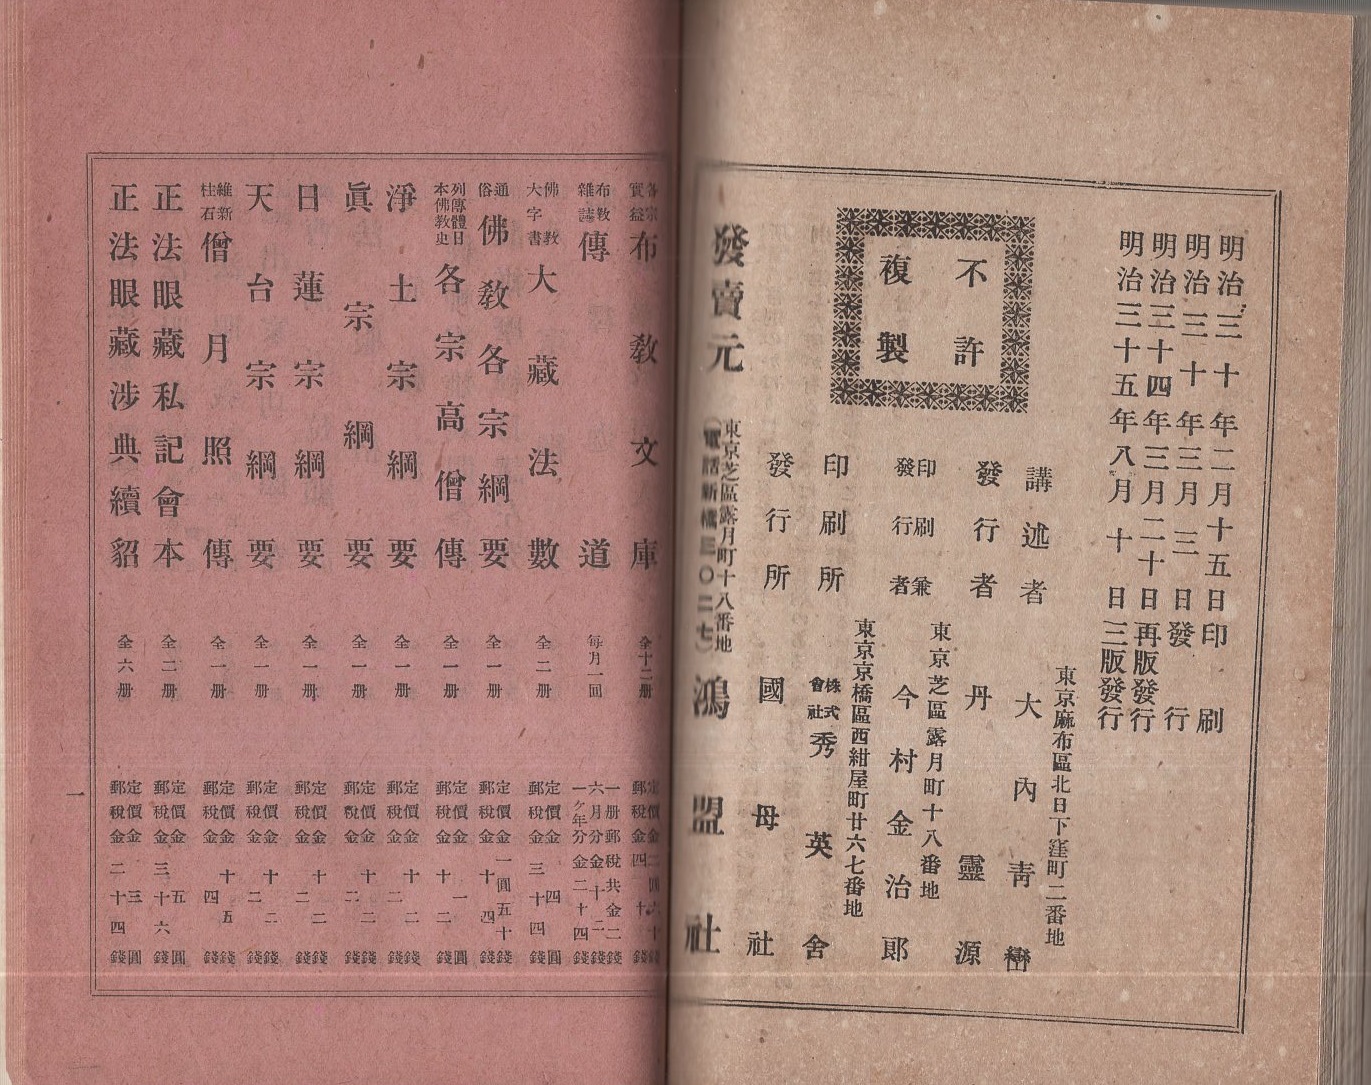 明治三十年二月十五日印刷
明治三十年三月三日發行
明治三十四年三月二十日再版發行
明治三十五年八月十日三版發行
不許
複製
東京麻布區北日下窪町二番地
講述者 大內青巒
發行者 丹靈源
東京芝區露月町十八番地
印刷兼
發行者 今村金治郎
東京京橋區西紺屋町廿六七番地
印刷所 株式會社 秀英舍
發行所 國母社
東京芝區露月町十八番地
(電話新橋三〇二七)
發賣元 鴻盟社
各宗實益 布教文庫 全十二册
布教雜誌 傳道 每月一回 一册郵稅共金二錢 六月分金十二錢 一ケ年分金二十四錢
佛教大字書 大藏法數 全二册 定價金四圓 郵稅金三十四錢
通俗 佛教各宗綱要 全一册 定價金一圓五十錢 郵稅金十四錢
列傳體日本佛教史 各宗高僧傳 全一册 定價金一圓 郵稅金十二錢
淨土宗綱要 全一册 定價金十二錢 郵稅金二錢
眞宗綱要 全一册 定價金十二錢 郵稅金二錢
日蓮宗綱要 全一册 定價金十二錢 郵稅金二錢
天台宗綱要 全一册 定價金十二錢 郵稅金二錢
維新柱石 僧月照傳 全一册 定價金十五錢 郵稅金四錢
正法眼藏私記會本 全二册 定價金五圓 郵稅金三十六錢
正法眼藏涉典續貂 全六册 定價金三圓 郵稅金二十四錢
一